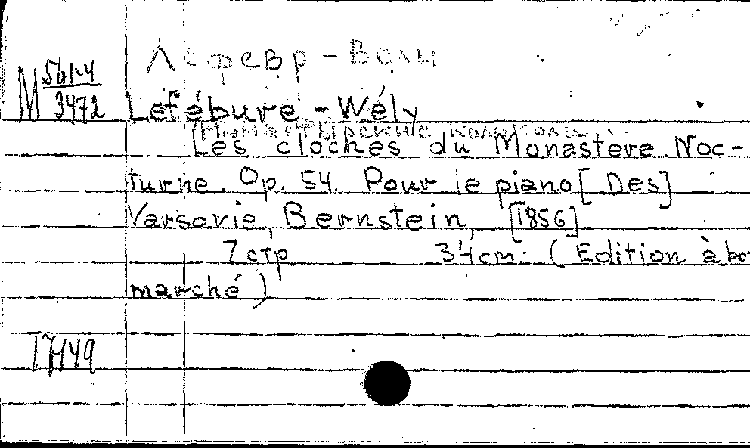 Лефевр - Вели
M 561-4
3472
Lefébure - Wély
Монастырские колокола
Les cloches du Monastère. Noc-
turne. Op. 54. Pour le piano [Des]
Varsovie, Bernstein, [1856]
7 стр 34 cm. (Edition à bo
marché)
17449